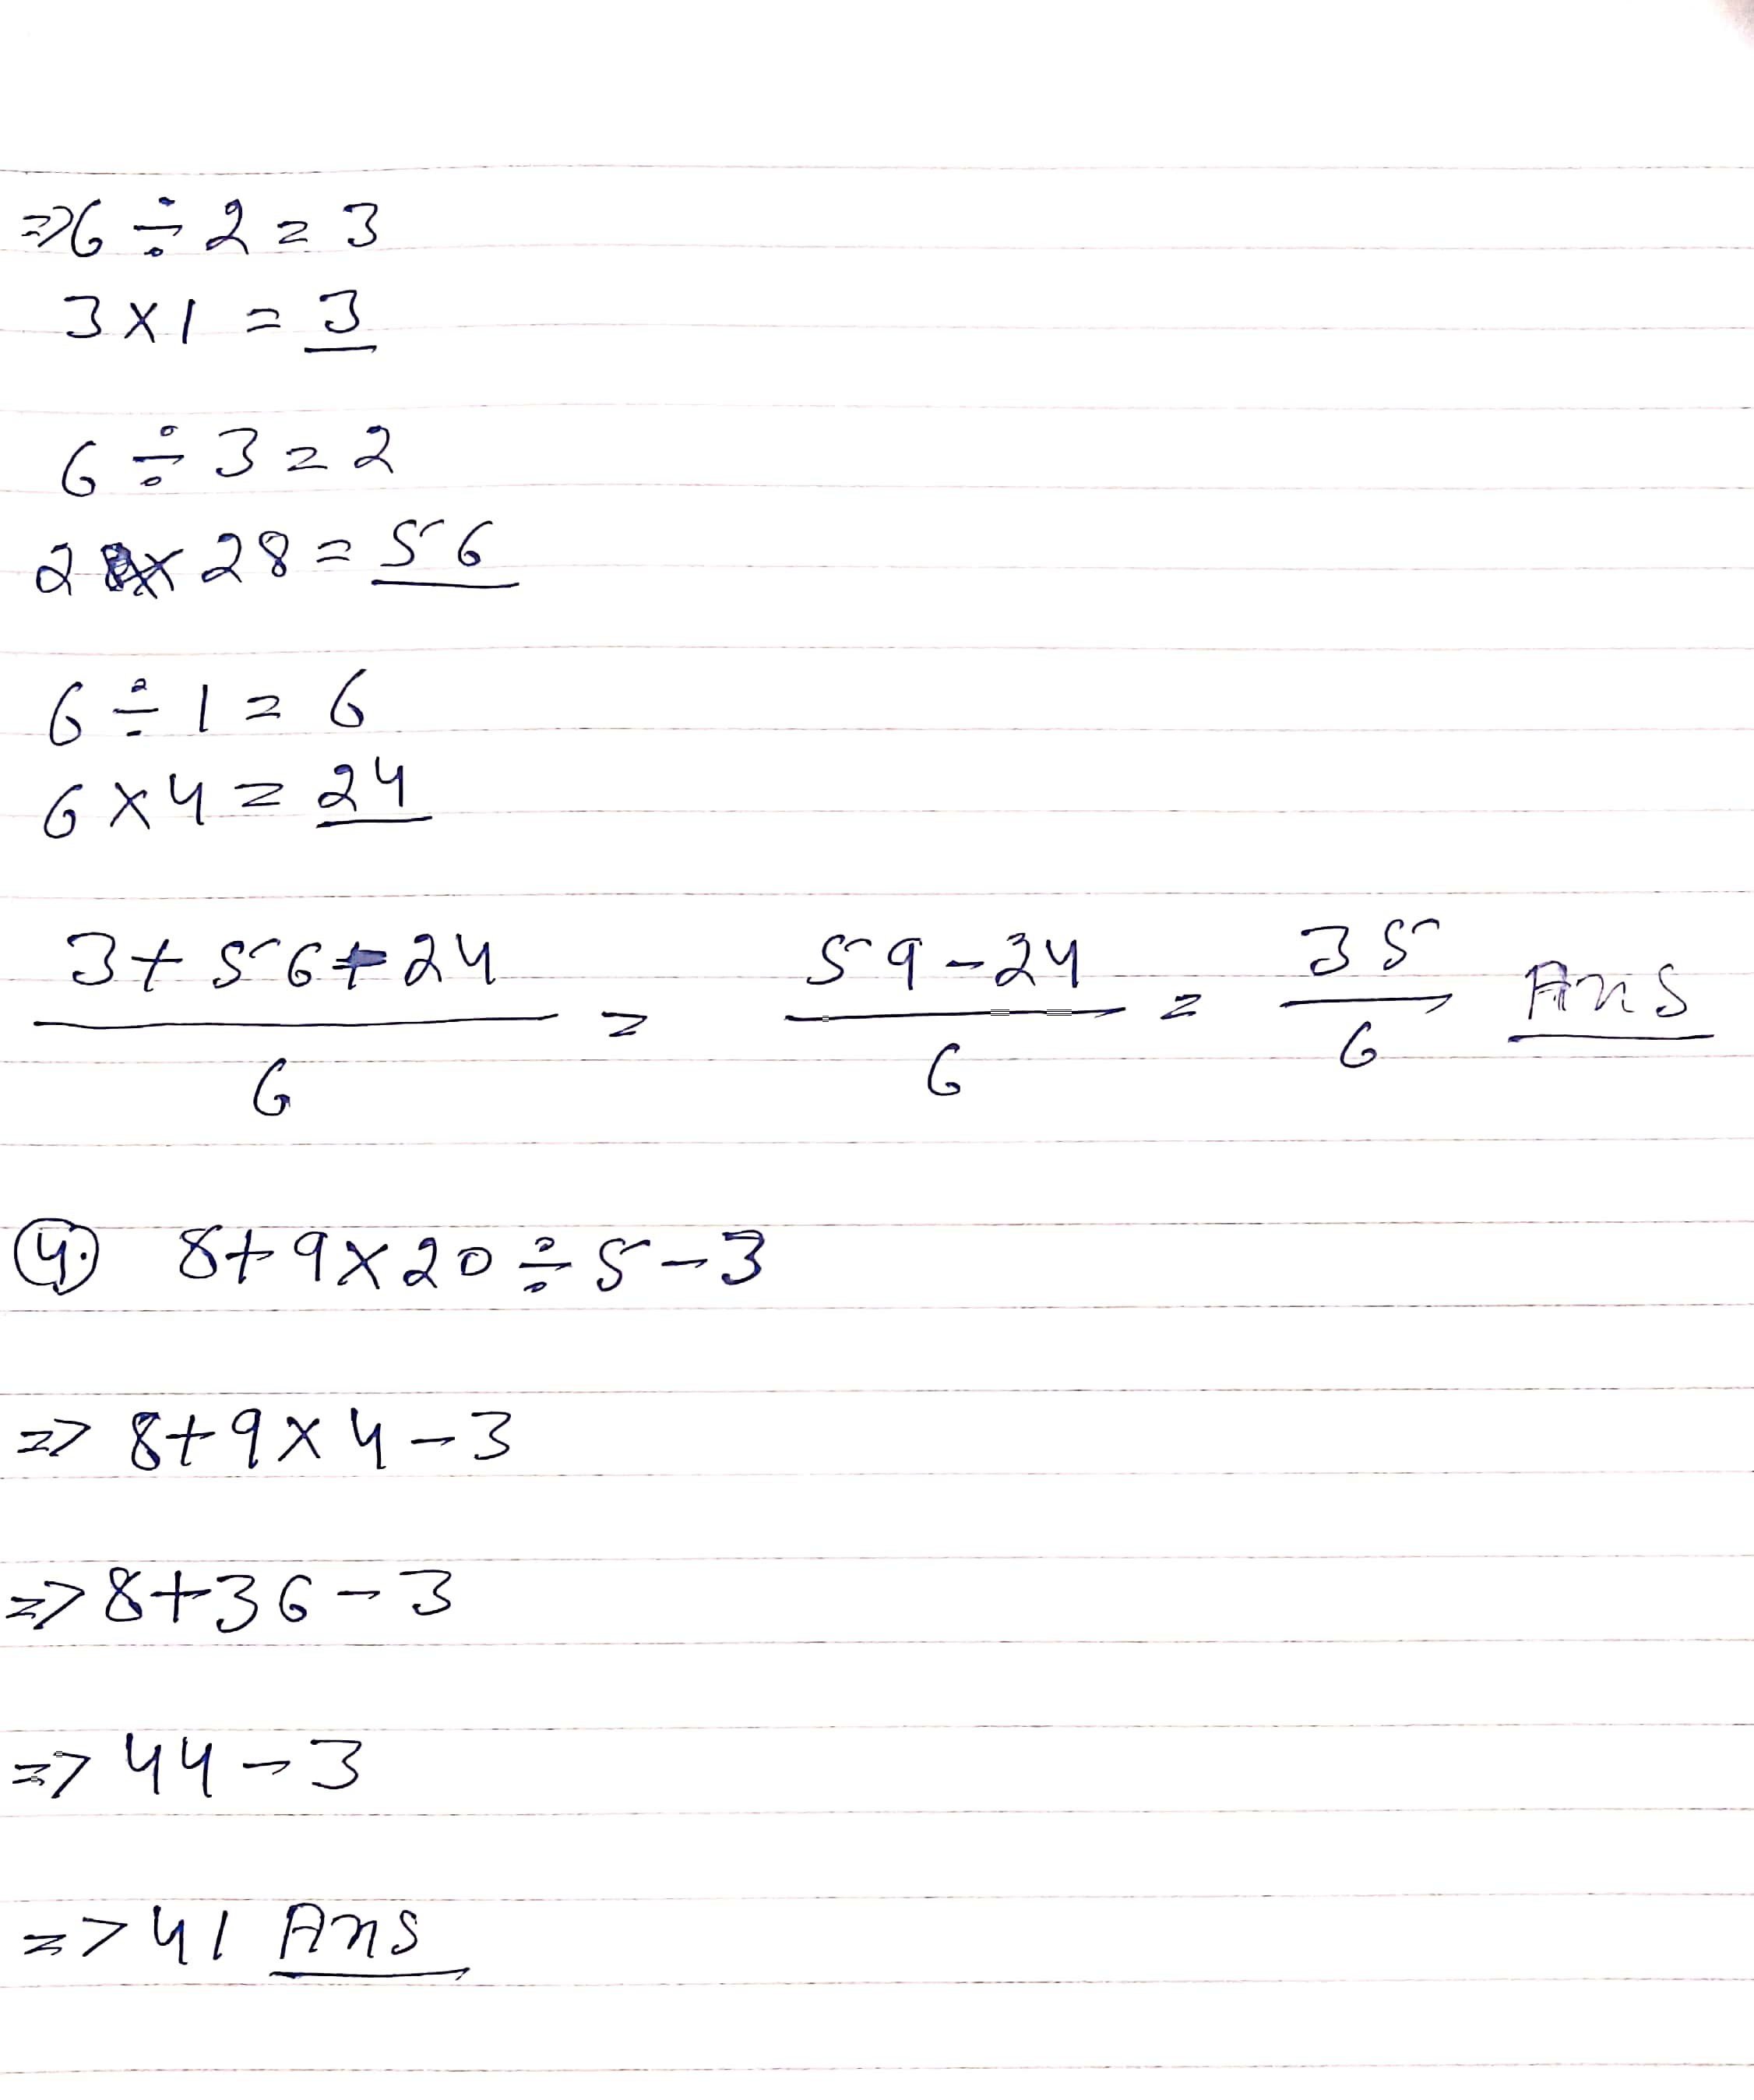 => 6 ÷ 2 = 3
3 × 1 = 3
6 ÷ 3 = 2
2 × 28 = 56
6 ÷ 1 = 6
6 × 4 = 24
3 + 56 - 24 / 6 = 59 - 24 / 6 = 35 / 6 Ans
4. 8 + 9 × 20 ÷ 5 - 3
=> 8 + 9 × 4 - 3
=> 8 + 36 - 3
=> 44 - 3
=> 41 Ans